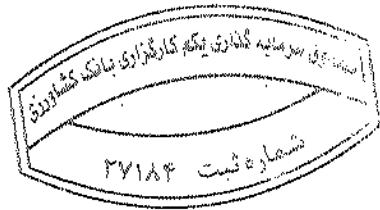 صندوق سرمایه گذاری یکم کارگزاری بانک کشاورزی
شماره ثبت ۲۷۱۸۴